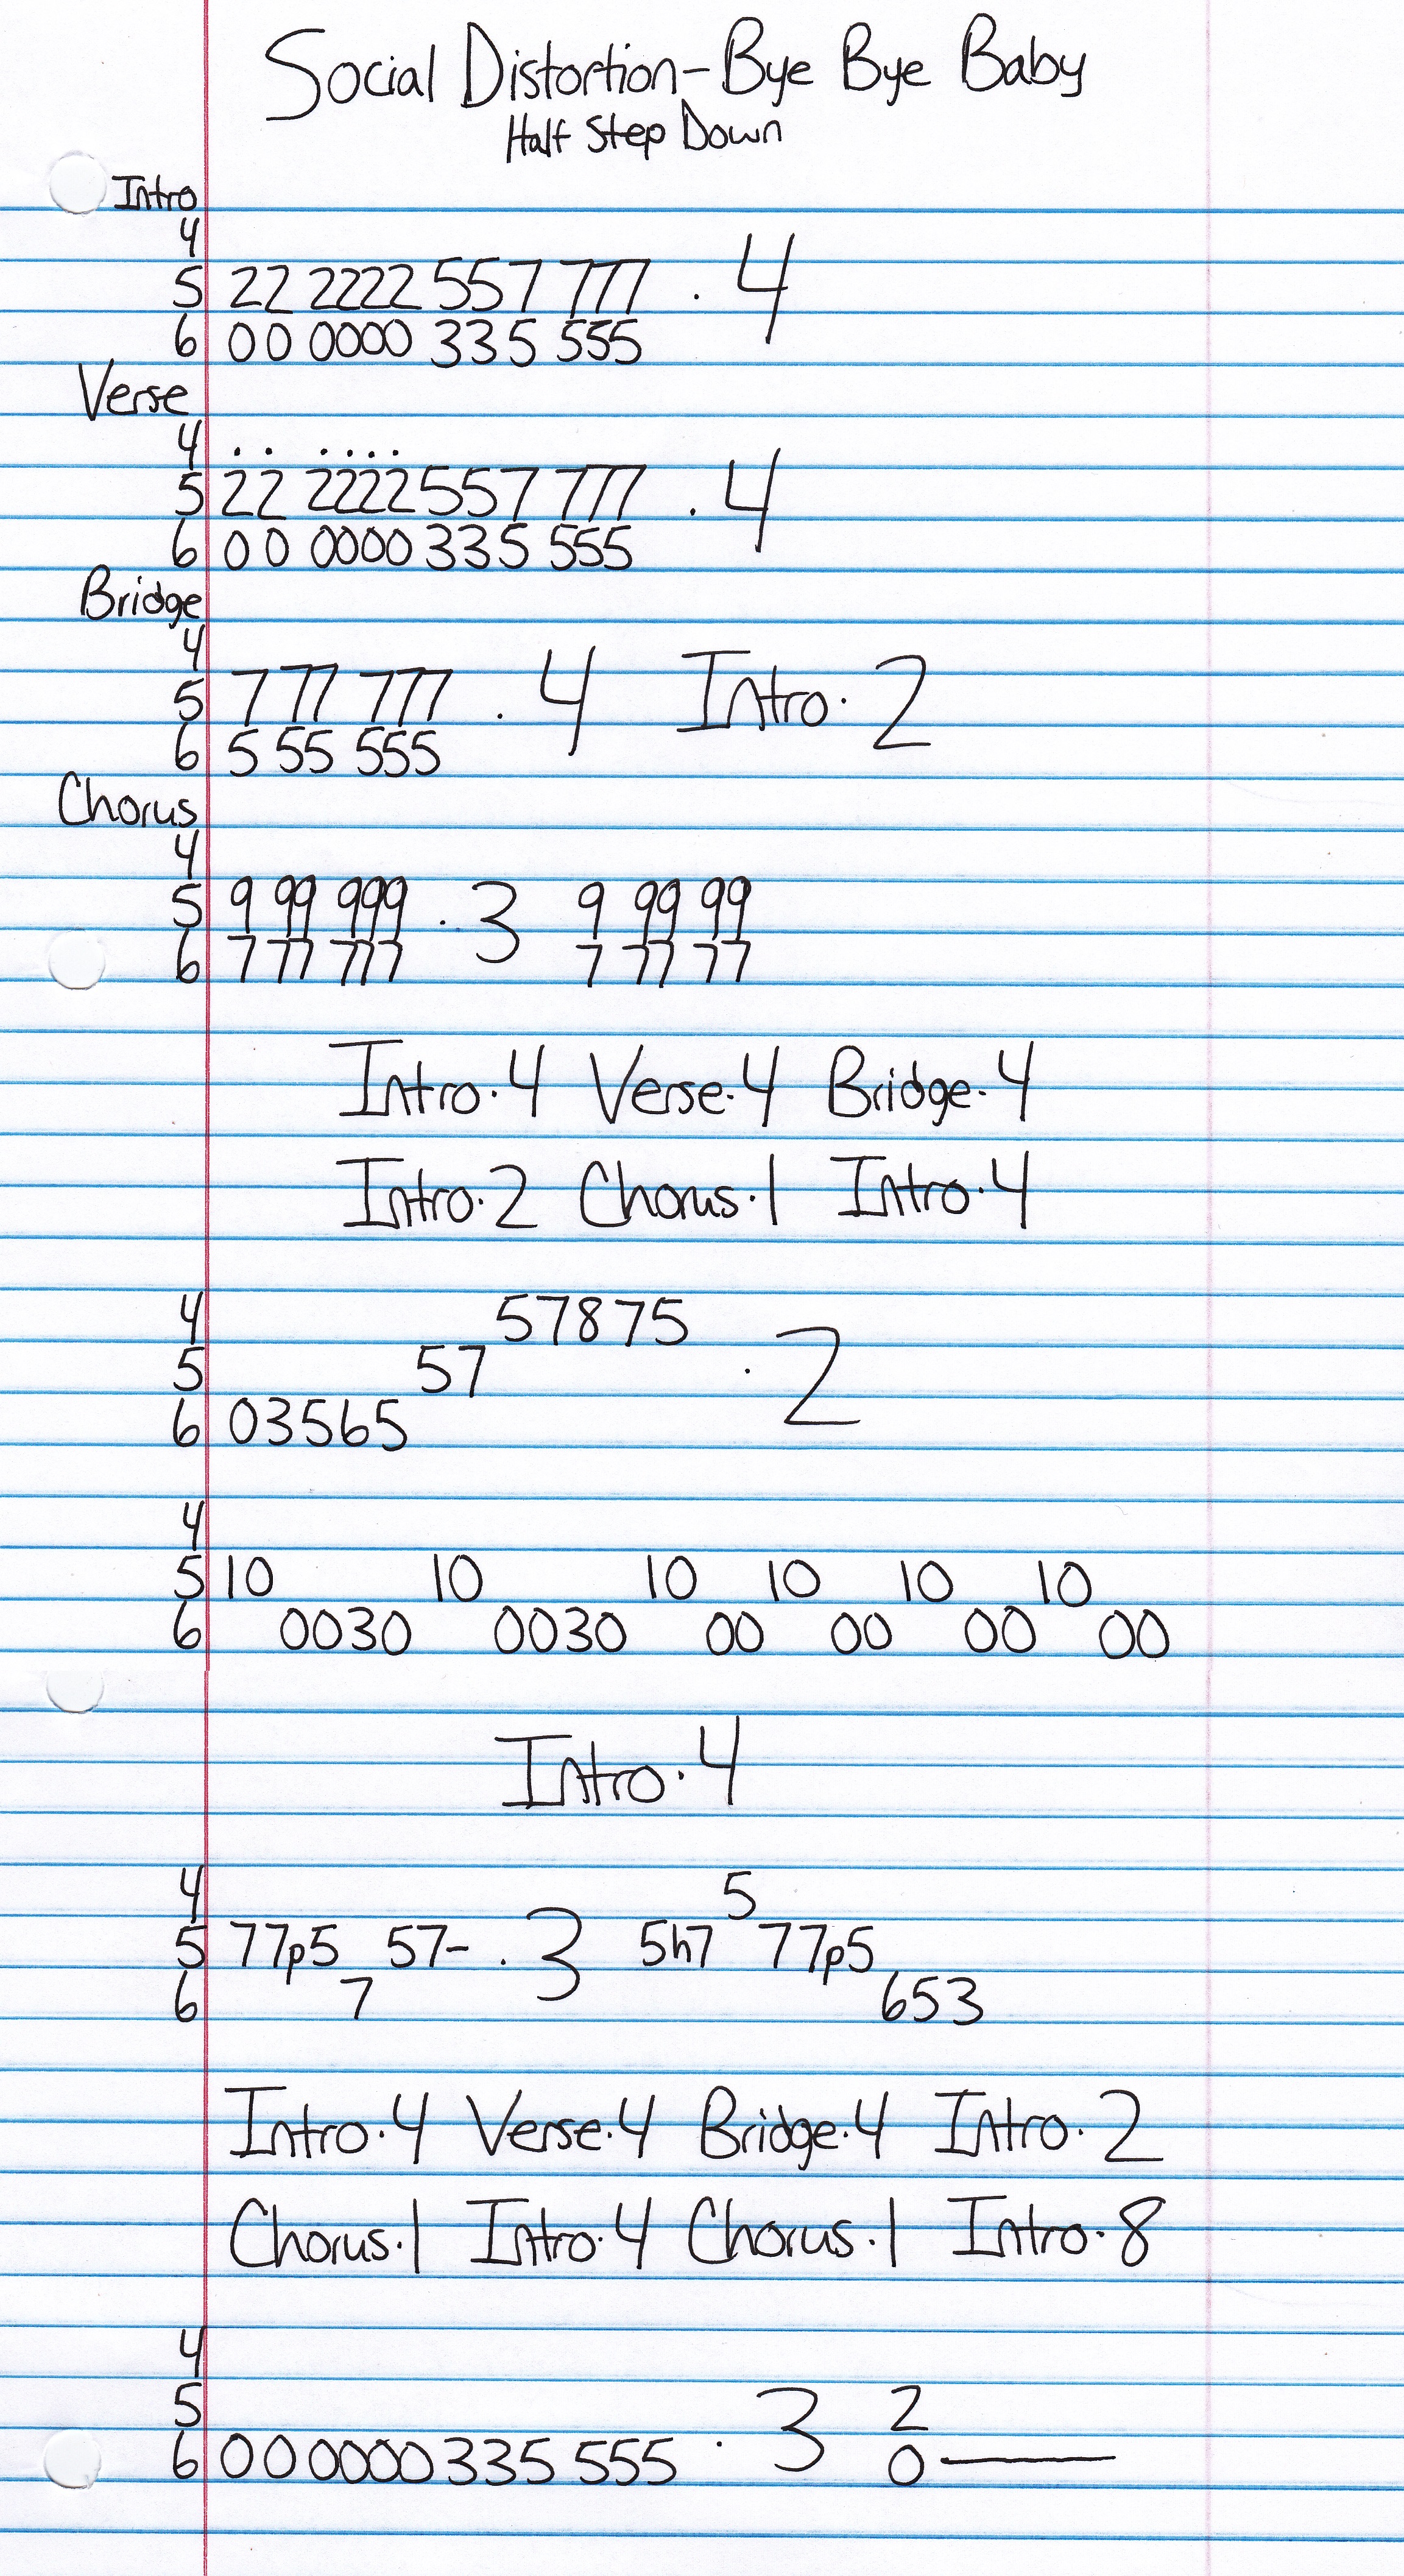 Social Distortion - Bye Bye Baby
Half Step Down
Intro
4
5 22 2222 557 777 . 4
6 00 0000 335 555
Verse
4 .. ....
5 22 2222 557 777 . 4
6 00 0000 335 555
Bridge
4
5 7 77 777 . 4 Intro · 2
6 5 55 555
Chorus
4
5 9 99 999 · 3 9 99 99
6 7 77 777 7 77 77
Intro · 4 Verse · 4 Bridge · 4
Intro · 2 Chorus · 1 Intro · 4
4 57875
5 57 · 2
6 03565
4
5 10 10 10 10 10 10
6 0030 0030 00 00 00 00
Intro · 4
4 5
5 77p5 57- . 3 5h7 77p5
6 7 653
Intro · 4 Verse · 4 Bridge · 4 Intro · 2
Chorus · 1 Intro · 4 Chorus · 1 Intro · 8
4
5 2
6 00 0000 335 555 · 3 0—